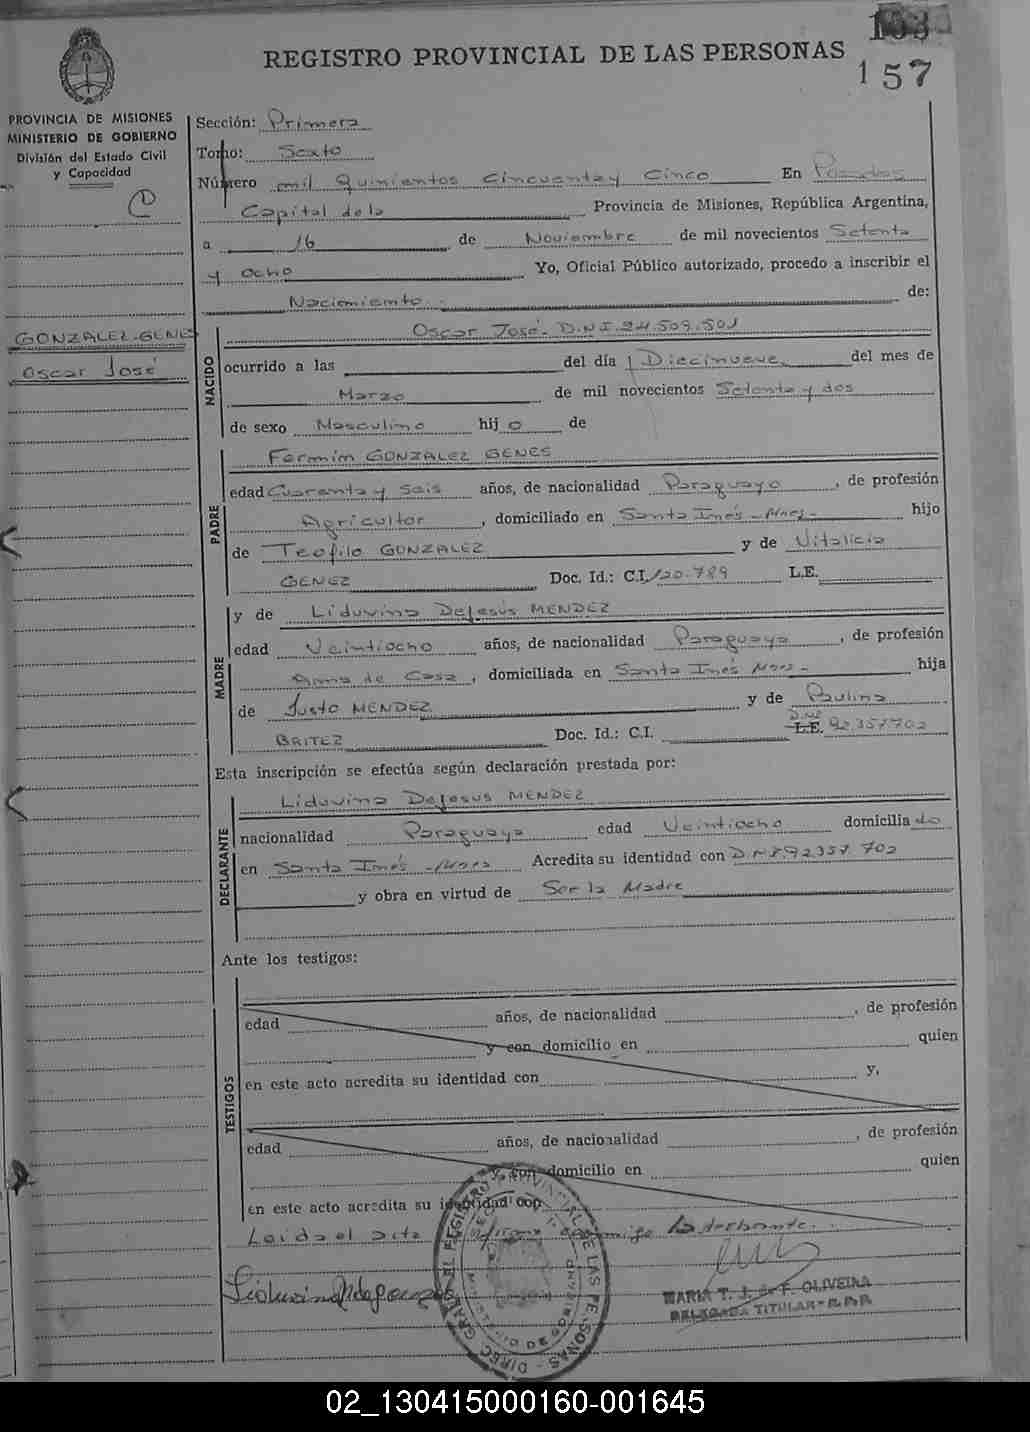 REGISTRO PROVINCIAL DE LAS PERSONAS
157
PROVINCIA DE MISIONES
MINISTERIO DE GOBIERNO
División del Estado Civil
y Capacidad
Sección: Primera
Tomo: Sexto
Número mil Quinientos Cincuenta y Cinco En Posadas
Capital de la Provincia de Misiones, República Argentina,
a 16 de Noviembre de mil novecientos Setenta
y ocho Yo, Oficial Público autorizado, procedo a inscribir el
Nacimiento de:
GONZALEZ-GENES
Oscar José
NACIDO
Oscar José. D.N.I. 24.509.501
ocurrido a las del día Diecinueve del mes de
Marzo de mil novecientos Setenta y dos
de sexo Masculino hij o de
PADRE
Fermin GONZALEZ GENES
edad Cuarenta y Seis años, de nacionalidad Paraguayo, de profesión
Agricultor, domiciliado en Santa Inés - Mnes - hijo
de Teofilo GONZALEZ y de Vitalicia
GENEZ Doc. Id.: C.I. 120.789 L.E.
MADRE
y de Liduvina DeJesús MENDEZ
edad Veintiocho años, de nacionalidad Paraguaya, de profesión
Ama de Casa, domiciliada en Santa Inés Mnes - hija
de Justo MENDEZ y de Paulina
BRITEZ Doc. Id.: C.I. L.E. D.N.I 92.357702
Esta inscripción se efectúa según declaración prestada por:
DECLARANTE
Liduvina DeJesus MENDEZ
nacionalidad Paraguaya edad Veintiocho domicilia do
en Santa Inés - Mnes Acredita su identidad con D.N.I. 92357.702
y obra en virtud de Ser la Madre
Ante los testigos:
TESTIGOS
edad años, de nacionalidad , de profesión
y con domicilio en quien
en este acto acredita su identidad con y,
edad años, de nacionalidad , de profesión
y con domicilio en quien
en este acto acredita su identidad con
Leida el acta firma conmigo la declarante.
MARIA T. J. de F. OLIVEIRA
DELEGADA TITULAR - R.P.P.
02_130415000160-001645